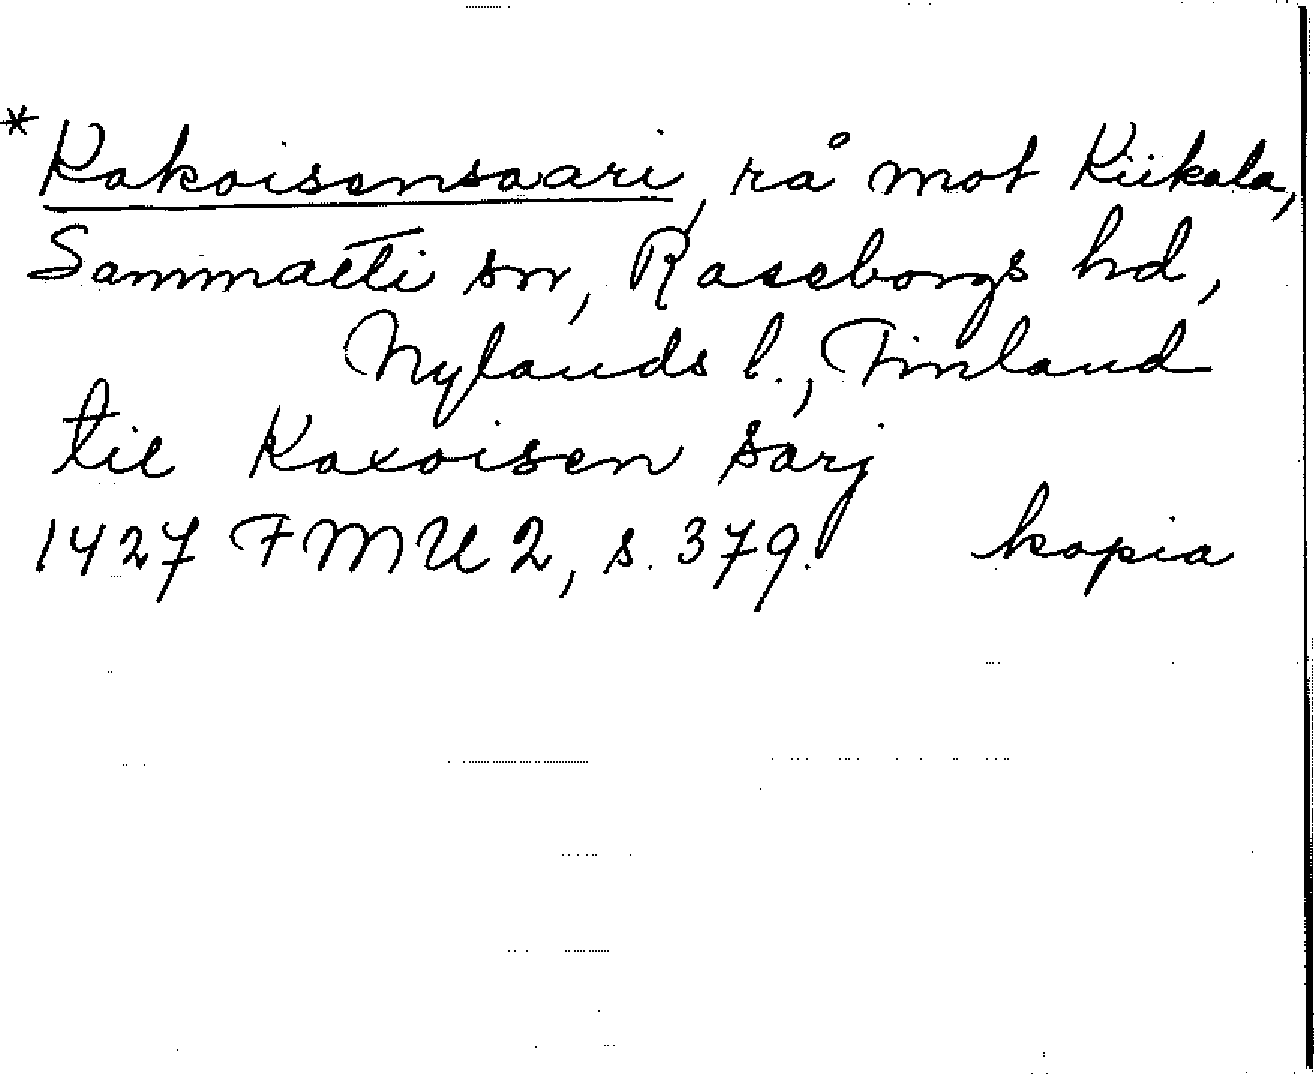 *Kakoisensaari, rå mot Kiikala,
Sammatti sn, Raseborgs hd,
Nylands l., Finland
til Kaxoisen sarj
1427 FMU 2, s. 379. kopia